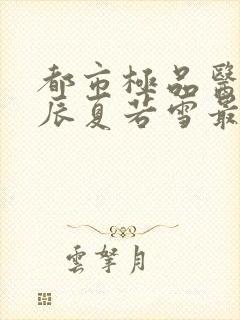 都市極品醫
辰夏若雪最
雲拏月